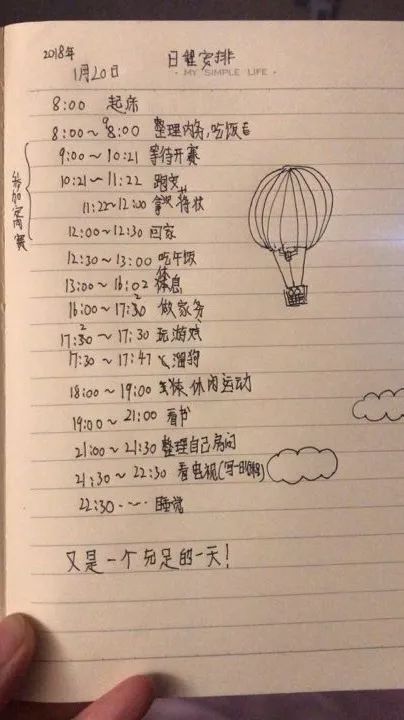 2018年
1月20日
日程安排
· MY SIMPLE LIFE ·
8:00 起床
8:00~9:00 整理内务,吃饭
9:00~10:21 等待开赛
10:21~11:22 跑
11:22~12:00 拿奖状
12:00~12:30 回家
参加 赛
12:30~13:00 吃午饭
13:00~16:02 休息
16:00~17:20 做家务
17:20~17:30 玩游戏
17:30~17:47 遛狗
18:00~19:00 休闲运动
19:00~21:00 看书
21:00~21:30 整理自己房间
21:30~22:30 看电视(写
22:30 ···· 睡觉
又是一个充足的一天!